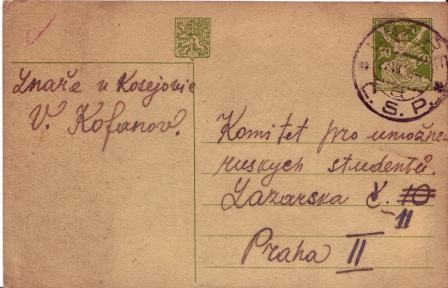 Lnaře u Kosejovic
V. Kofanov.
50
Č.S.P.
Komitet pro umožne
ruskych studentů
Lazarska č. 10
11
Praha II